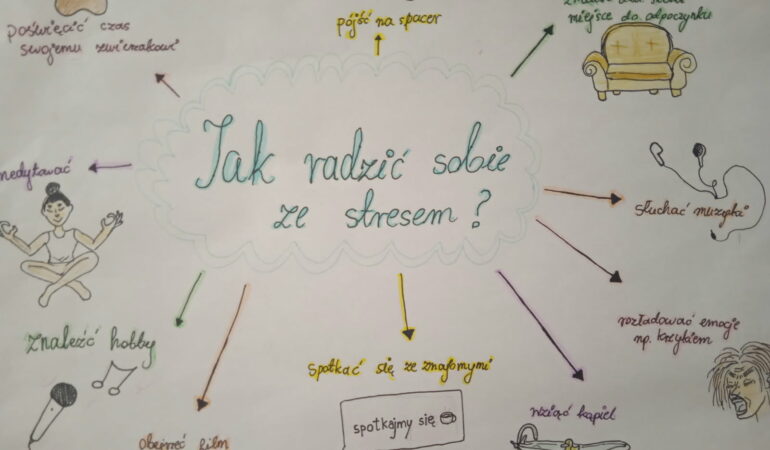 poświęcić czas
swojemu zwierzakowi
pójść na spacer
miejsce do odpoczynku
Jak radzić sobie
ze stresem?
medytować
słuchać muzyki
rozładować emocje
np. krzykiem
znaleźć hobby
spotkać się ze znajomymi
spotkajmy się
wziąć kąpiel
obejrzeć film